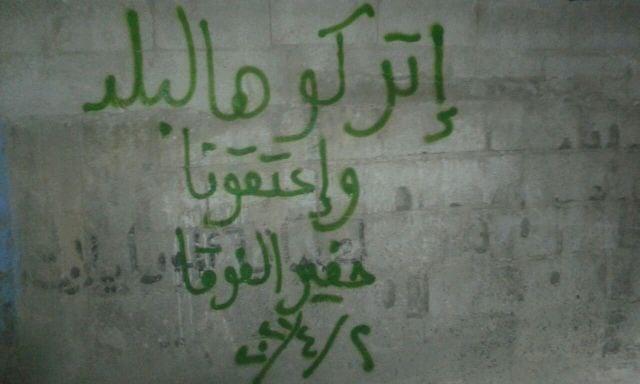 إتركو هالبلد
وإعتقونا
حفير الفوقا